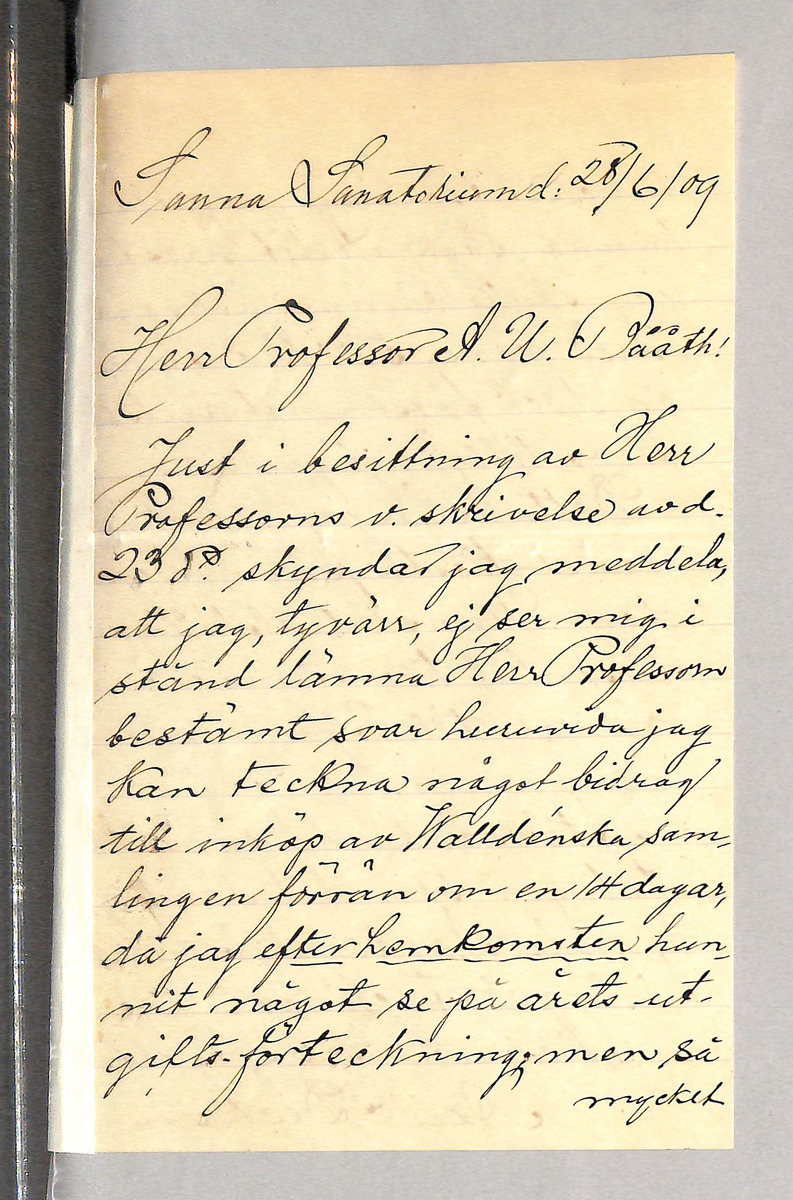 Sanna Sanatorium d: 28/6/09
Herr Professor A. U. Bååth!
Just i besittning av Herr
Professorns v. skrivelse av d.
23 ds. skyndar jag meddela,
att jag, tyvärr, ej ser mig i
stånd lämna Herr Professorn
bestämt svar huruvida jag
kan teckna något bidrag
till inköp av Walldénska sam-
lingen förrän om en 14 dagar,
då jag efter hemkomsten hun-
nit något se på årets ut-
gifts-förteckning; men så
mycket